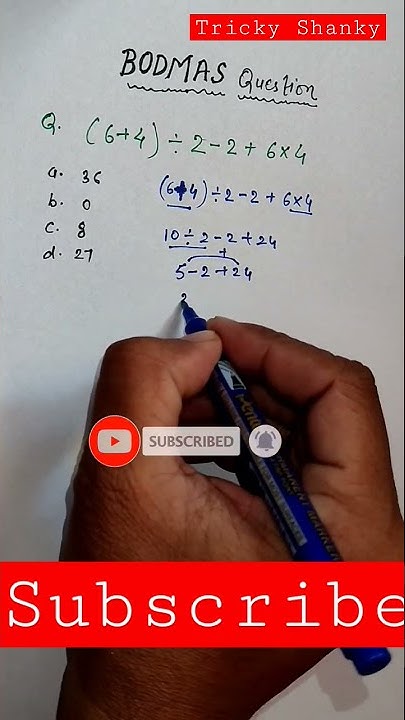 Tricky Shanky
BODMAS Question
Q. (6+4) ÷ 2 - 2 + 6 × 4
a. 36
b. 0
c. 8
d. 27
(6+4) ÷ 2 - 2 + 6 × 4
10 ÷ 2 - 2 + 24
+
5 - 2 + 24
2
SUBSCRIBED
Subscribe